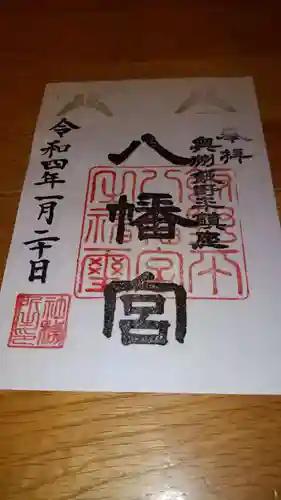 奉拝
奥州飯野平鎮座
八幡宮
令和四年一月二十日